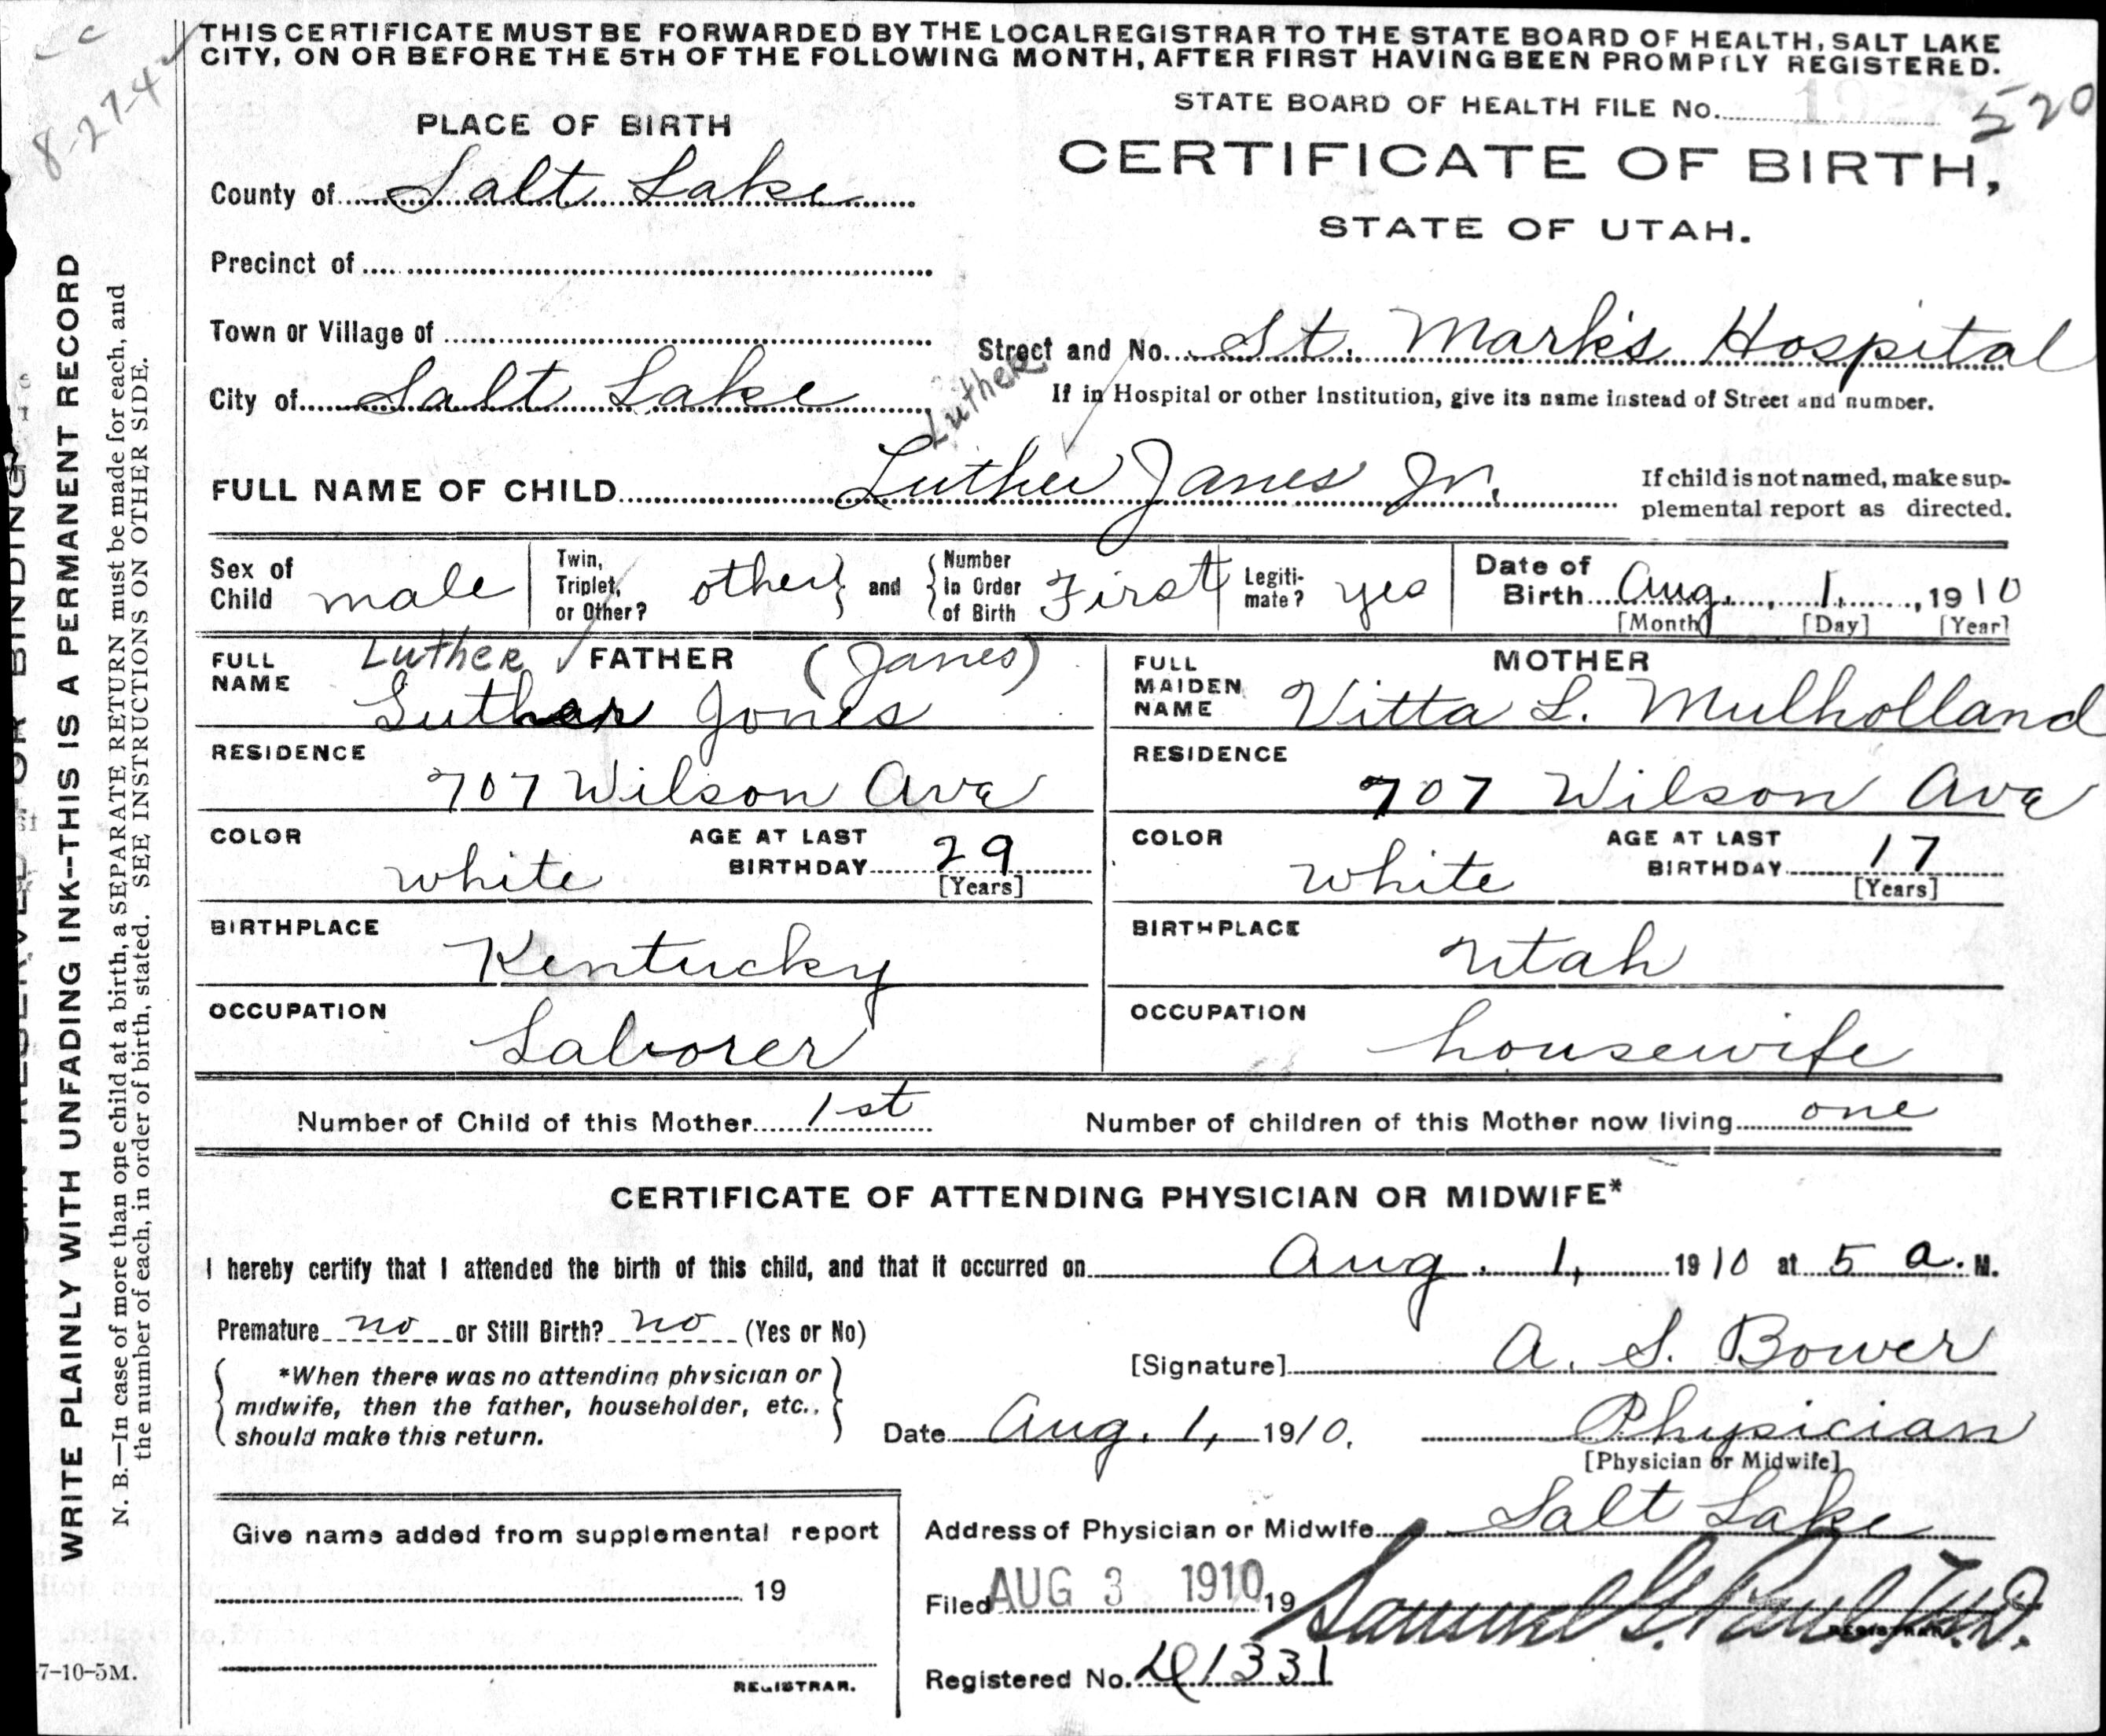 THIS CERTIFICATE MUST BE FORWARDED BY THE LOCAL REGISTRAR TO THE STATE BOARD OF HEALTH, SALT LAKE
CITY, ON OR BEFORE THE 5TH OF THE FOLLOWING MONTH, AFTER FIRST HAVING BEEN PROMPTLY REGISTERED.
8-27-4
STATE BOARD OF HEALTH FILE No. 520
PLACE OF BIRTH
CERTIFICATE OF BIRTH,
STATE OF UTAH.
County of Salt Lake
Precinct of
Town or Village of
Street and No. St. Mark's Hospital
If in Hospital or other Institution, give its name instead of Street and number.
City of Salt Lake
Luther
FULL NAME OF CHILD Luther Janes Jr.
If child is not named, make sup-
plemental report as directed.
Sex of Child male
Twin, Triplet, or Other? other and Number in Order of Birth First
Legiti-mate? yes
Date of Birth Aug. 1, 1910
[Month] [Day] [Year]
FATHER
Luther (Janes)
FULL NAME Luther Jones
RESIDENCE 707 Wilson Ave
COLOR white
AGE AT LAST BIRTHDAY 29
[Years]
BIRTHPLACE Kentucky
OCCUPATION Laborer
MOTHER
FULL MAIDEN NAME Vitta L. Mulholland
RESIDENCE 707 Wilson Ave
COLOR white
AGE AT LAST BIRTHDAY 17
[Years]
BIRTHPLACE Utah
OCCUPATION housewife
Number of Child of this Mother 1st
Number of children of this Mother now living one
CERTIFICATE OF ATTENDING PHYSICIAN OR MIDWIFE*
I hereby certify that I attended the birth of this child, and that it occurred on Aug. 1, 1910 at 5 a. M.
Premature no or Still Birth? no (Yes or No)
*When there was no attending physician or
midwife, then the father, householder, etc.,
should make this return.
[Signature] A. S. Bower
Date Aug. 1, 1910. Physician
[Physician or Midwife]
Address of Physician or Midwife Salt Lake
Give name added from supplemental report
19
REGISTRAR.
Filed AUG 3 1910 19 Samuel G. Paul, M.D.
REGISTRAR.
Registered No. 1331
WRITE PLAINLY WITH UNFADING INK--THIS IS A PERMANENT RECORD
N. B.—In case of more than one child at a birth, a SEPARATE RETURN must be made for each, and
the number of each, in order of birth, stated. SEE INSTRUCTIONS ON OTHER SIDE.
7-10-5M.